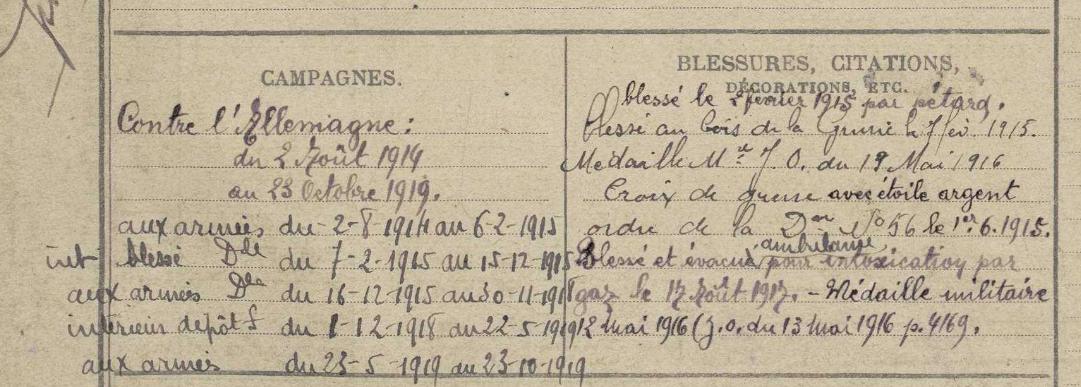 CAMPAGNES.
Contre l'Allemagne:
du 2 Août 1914
au 23 Octobre 1919.
aux armées du 2-8 1914 au 6-2-1915
int blessé Dle du 7-2-1915 au 15-12-1915
aux armées Dle du 16-12-1915 au 30-11-1918
intérieur dépôt du 1-12-1918 au 22-5-1919
aux armées du 23-5-1919 au 23-10-1919
BLESSURES, CITATIONS,
DÉCORATIONS, ETC.
blessé le février 1915 par pétard.
blessé au bois de la Grurie le 7 fév 1915.
Médaille Mre J.O. du 19 Mai 1916
Croix de guerre avec étoile argent
ordre de la Don No 56 le 1er.6.1915.
ambulance
Blessé et évacué pour intoxication par
gaz le 17 Août 1917. - Médaille militaire
12 mai 1916 (J.O. du 13 mai 1916 p. 4169.